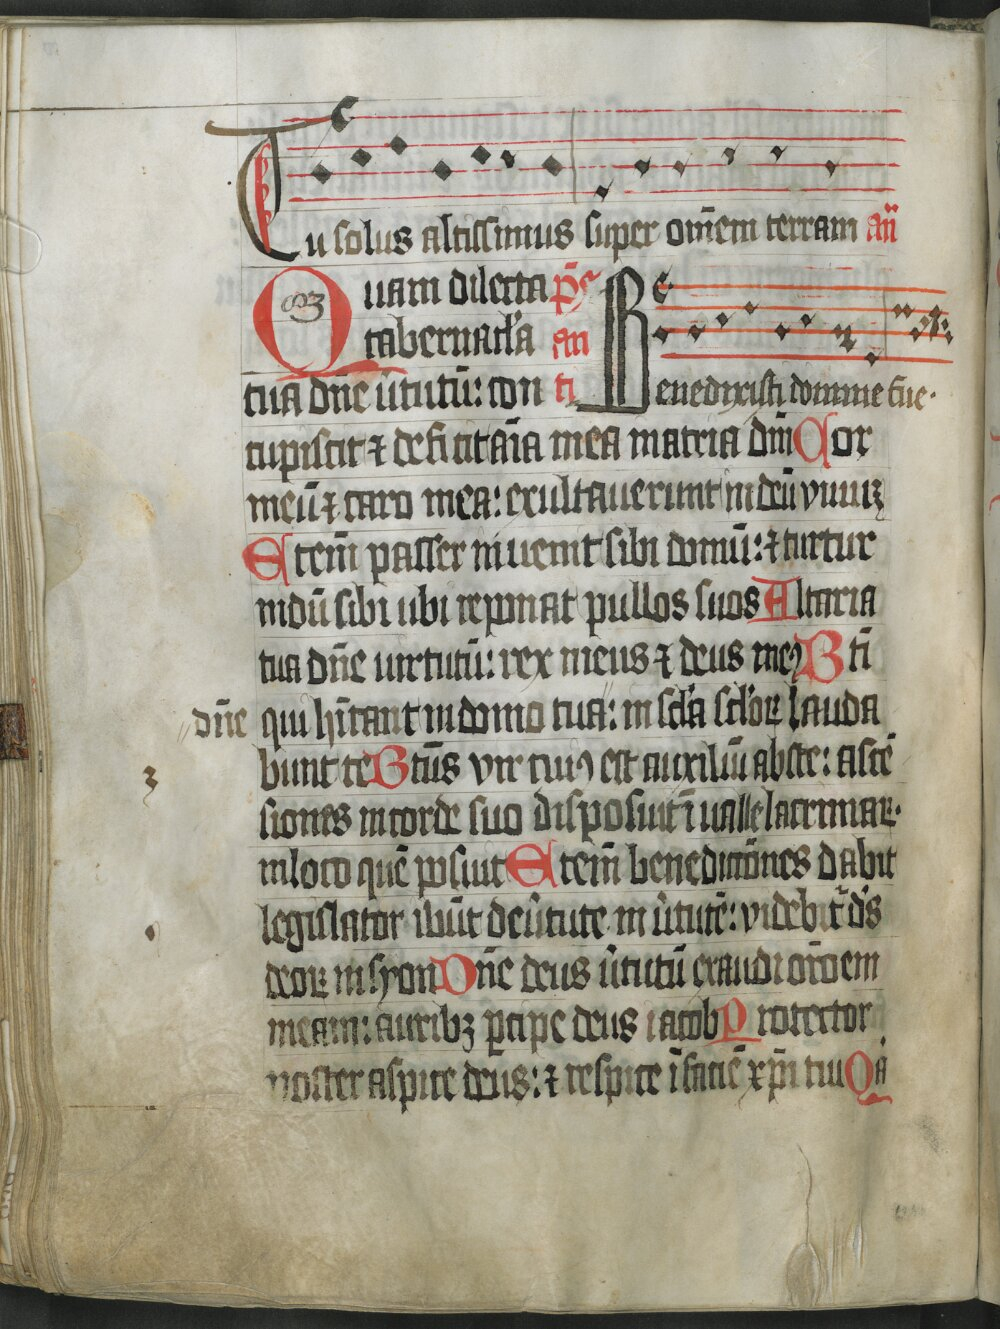 Tu solus altissimus super om̄em terram an̄
Quam dilecta p̄s
83
tabernac̄la an
tua dn̄e ūtutū: con ti
Benedixisti domine
cupiscit ⁊ deficit aīa mea in atria dn̄i Cor
meū ⁊ caro mea: exultaverunt in deū vivuꝫ
Eteni̅ passer invenit sibi domū: ⁊ turtur
nidū sibi ubi reponat pullos suos Altaria
tua dn̄e virtutū: rex meus ⁊ deus meꝰ Bt̄i
dn̄e qui hi̅tant in domo tua: in sc̄la sc̄loꝝ lauda
bunt te Bt̄us vir cuiꝰ est auxiliū abs te: ascē
siones in corde suo disposuit ī valle lacrimaꝝ
in loco quē posuit Eteni̅ benedictōnes dabit
legislator ibūt de ūtute in ūtutē: videbit᷑ d̄s
deoꝝ in syon Dn̄e deus ūtutū exaudi or̄oem
meam: auribꝫ ꝑcipe deus iacob Protector
noster aspice deus: ⁊ respice ī faciē xp̄i tui Qa̅